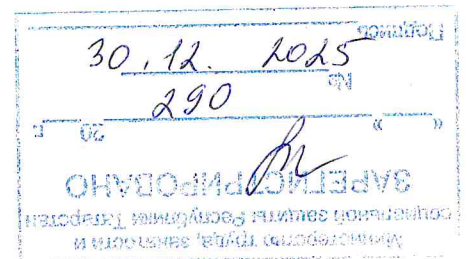 Министерство труда, занятости и
социальной защиты Республики Татарстан
ЗАРЕГИСТРИРОВАНО
« » 20 г.
290
№
30.12. 2025
Подпись